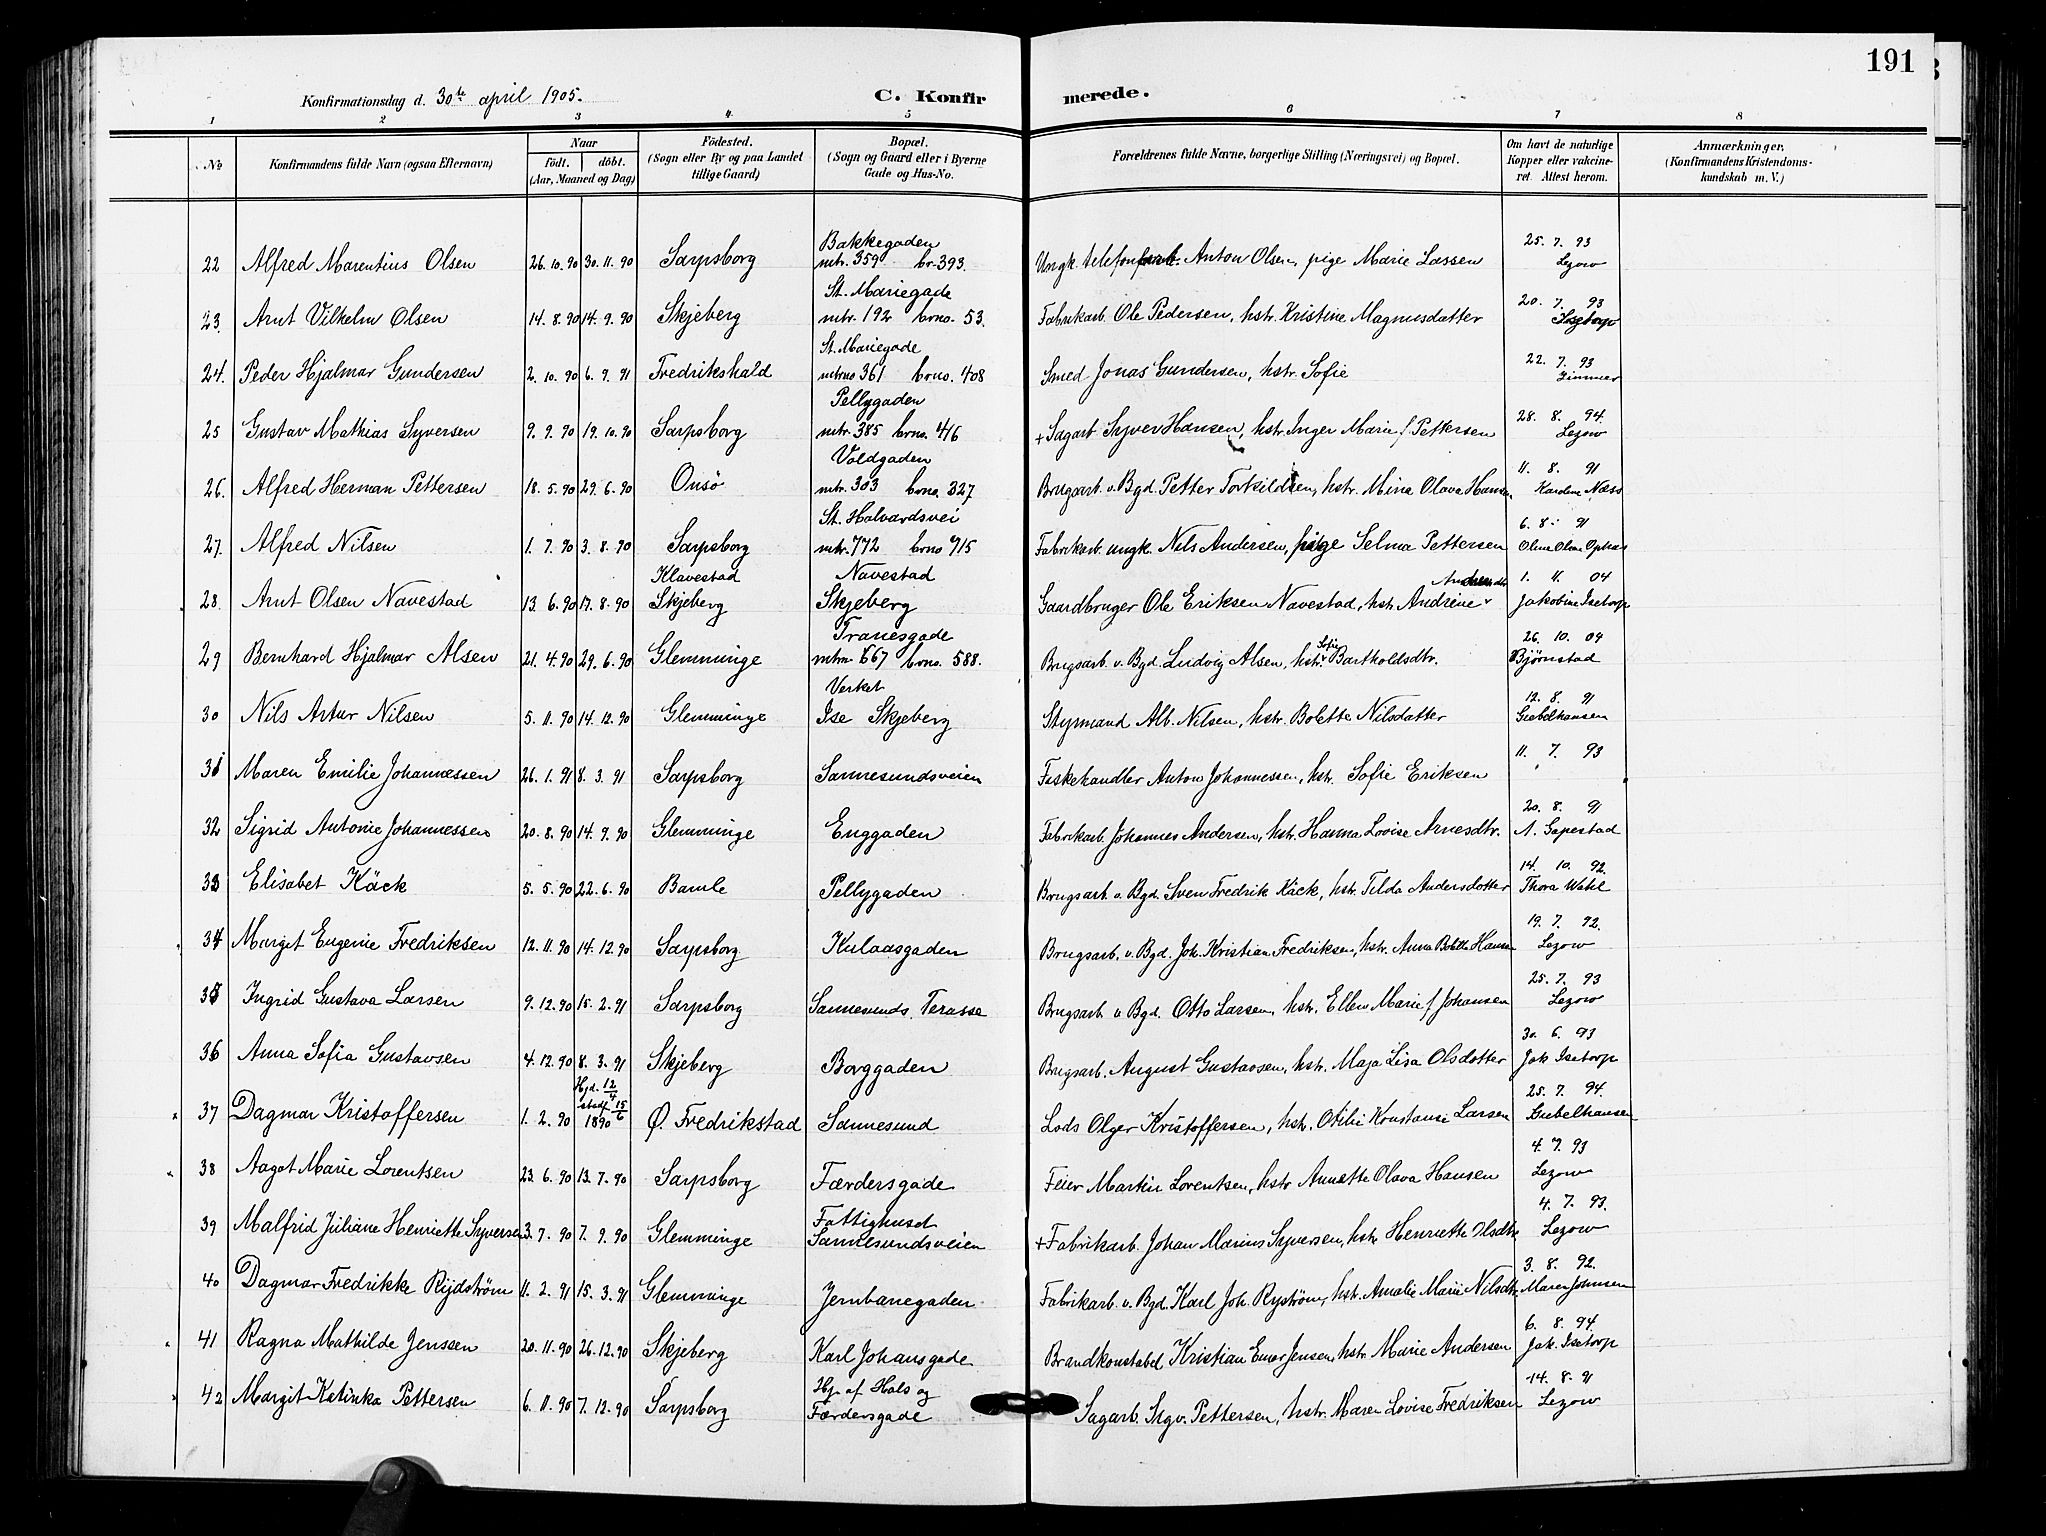 191
Konfirmationsdag d. 30te april 1905. C. Konfirmerede.
1 2 3 4 5 6 7 8
No Konfirmandens fulde Navn (ogsaa Efternavn) Naar födt. döbt. (Aar, Maaned og Dag) Födested. (Sogn eller By og paa Landet tillige Gaard) Bopæl. (Sogn og Gaard eller i Byerne Gade og Hus-No. Forældrenes fulde Navne, borgerlige Stilling (Næringsvei) og Bopæl. Om havt de naturlige Kopper eller vakcineret. Attest herom. Anmærkninger. (Konfirmandens Kristendomskundskab m. V.)
Bakkegaden 25. 7. 93
22 Alfred Marentius Olsen 26.10.90 30.11.90 Sarpsborg mtr. 359 br. 393. Ungk. telefonarb. Anton Olsen, pige Marie Lassen Lezow
St. Mariegade 20. 7. 93
23. Arnt Vilhelm Olsen 14.8.90 14.9.90 Skjeberg mtr. 192 brno. 53. Fabrikarb. Ole Pedersen, hstr. Kristine Magnusdatter Isetorp
St. Mariegade 22. 7. 93
24. Peder Hjalmar Gundersen 2.10.90 6.9.91 Fredrikshald mtrno 361 brno. 408 Smed Jonas Gundersen, hstr. Sofie Zimmer
Pellygaden 28. 8. 94.
25 Gustav Mathias Syversen 9.9.90 19.10.90 Sarpsborg mtr. 385 brno. 416 + Sagarb. Syver Hansen, hstr. Inger Marie f Pettersen Lezow
Voldgaden 11. 8. 91
26. Alfred Herman Pettersen 18.5.90 29.6.90 Onsö mtr. 303 brno. 327 Brugsarb. v. Bgd. Petter Torkildsen, hstr. Mina Olava Hansen Karoline Næss
St. Halvardsvei 6. 8. 91
27. Alfred Nilsen 1.7.90 3.8.90 Sarpsborg mtr. 772 brno 915 Fabrikarb. ungk. Nils Andersen, pige Selma Pettersen
Klavestad Navestad 1. 11. 04
28. Arnt Olsen Navestad 13.6.90 17.8.90 Skjeberg Skjeberg Gaardbruger Ole Eriksen Navestad, hstr. Andrine Jakobine Isetorp
Tranesgade 26. 10. 04
29 Bernhard Hjalmar Alsen 21.4.90 29.6.90 Glemminge mtrn. 667 brno. 588. Brugsarb. v. Bgd. Ludvig Alsen, hstr. Sofie Bartholdsdtr. Bjørnstad
Verket 12. 8. 91
30 Nils Artur Nilsen 5.11.90 14.12.90 Glemminge Ise Skjeberg Styrmand Alb. Nilsen, hstr. Bolette Nilsdatter Giebelhausen
31 Maren Emilie Johannessen 26.1.91 8.3.91 Sarpsborg Sannesundsveien Fiskehandler Anton Johannessen, hstr. Sofie Eriksen 11. 7. 93
20. 8. 91
32 Sigrid Antonie Johannessen 20.8.90 14.9.90 Glemminge Enggaden Fabrikarb. Johannes Andersen, hstr. Hanna Lovise Arnesdtr. A. Gapestad
14. 10. 92.
33 Elisabet Käck 5.5.90 22.6.90 Bamle Pellygaden Brugsarb. v. Bgd. Sven Fredrik Käck, hstr. Tilda Andersdotter Thora Wahl
19. 7. 92.
34 Margit Eugenie Fredriksen 12.11.90 14.12.90 Sarpsborg Kulaasgaden Brugsarb. v. Bgd. Joh. Kristian Fredriksen, hstr. Anna Bolette Hansen Lezow
25. 7. 93
35 Ingrid Gustava Larsen 9.12.90 15.2.91 Sarpsborg Sannesunds. Terasse Brugsarb v Bgd. Otto Larsen, hstr. Ellen Marie f Johansen Lezow
30. 6. 93
36 Anna Sofia Gustavsen 4.12.90 8.3.91 Skjeberg Borggaden Brugsarb. August Gustavsen, hstr. Maja Lisa Olsdotter Jak. Isetorp
Hjd. 12/4 25. 7. 94.
37 Dagmar Kristoffersen 1.2.90 stadf 15/6 1890 Ø. Fredrikstad Sannesund Lods Olger Kristoffersen, hstr. Otilie Konstanse Larsen Giebelhausen
4. 7. 93
38 Aagot Marie Lorentsen 23.6.90 13.7.90 Sarpsborg Færdersgade Feier Martin Lorentsen, hstr Annette Olava Hansen Lezow
Fattighusd 4. 7. 93.
39 Malfrid Juliane Henriette Syversen 3.7.90 7.9.90 Glemminge Sannesundsveien + Fabrikarb. Johan Marius Syversen, hstr Henriette Olsdtr Lezow
3. 8. 92.
40 Dagmar Fredrikke Rydström 11.2.91 15.3.91 Glemminge Jernbanegaden Fabrikarb. v. Bgd. Karl Joh. Ryström, hstr. Amalie Marie Nilsdtr. Maren Johnsen
6. 8. 94.
41 Ragna Mathilde Jenssen 20.11.90 26.12.90 Skjeberg Karl Johansgade Brandkonstabel Kristian Emar Jensen, hstr. Marie Andersen Jak. Isetorp
Hj. af Hals og 14. 8. 91
42 Margit Katinka Pettersen 6.11.90 7.12.90 Sarpsborg Færdersgade Sagarb. Sigv. Pettersen, hstr. Maren Lovise Fredriksen Lezow